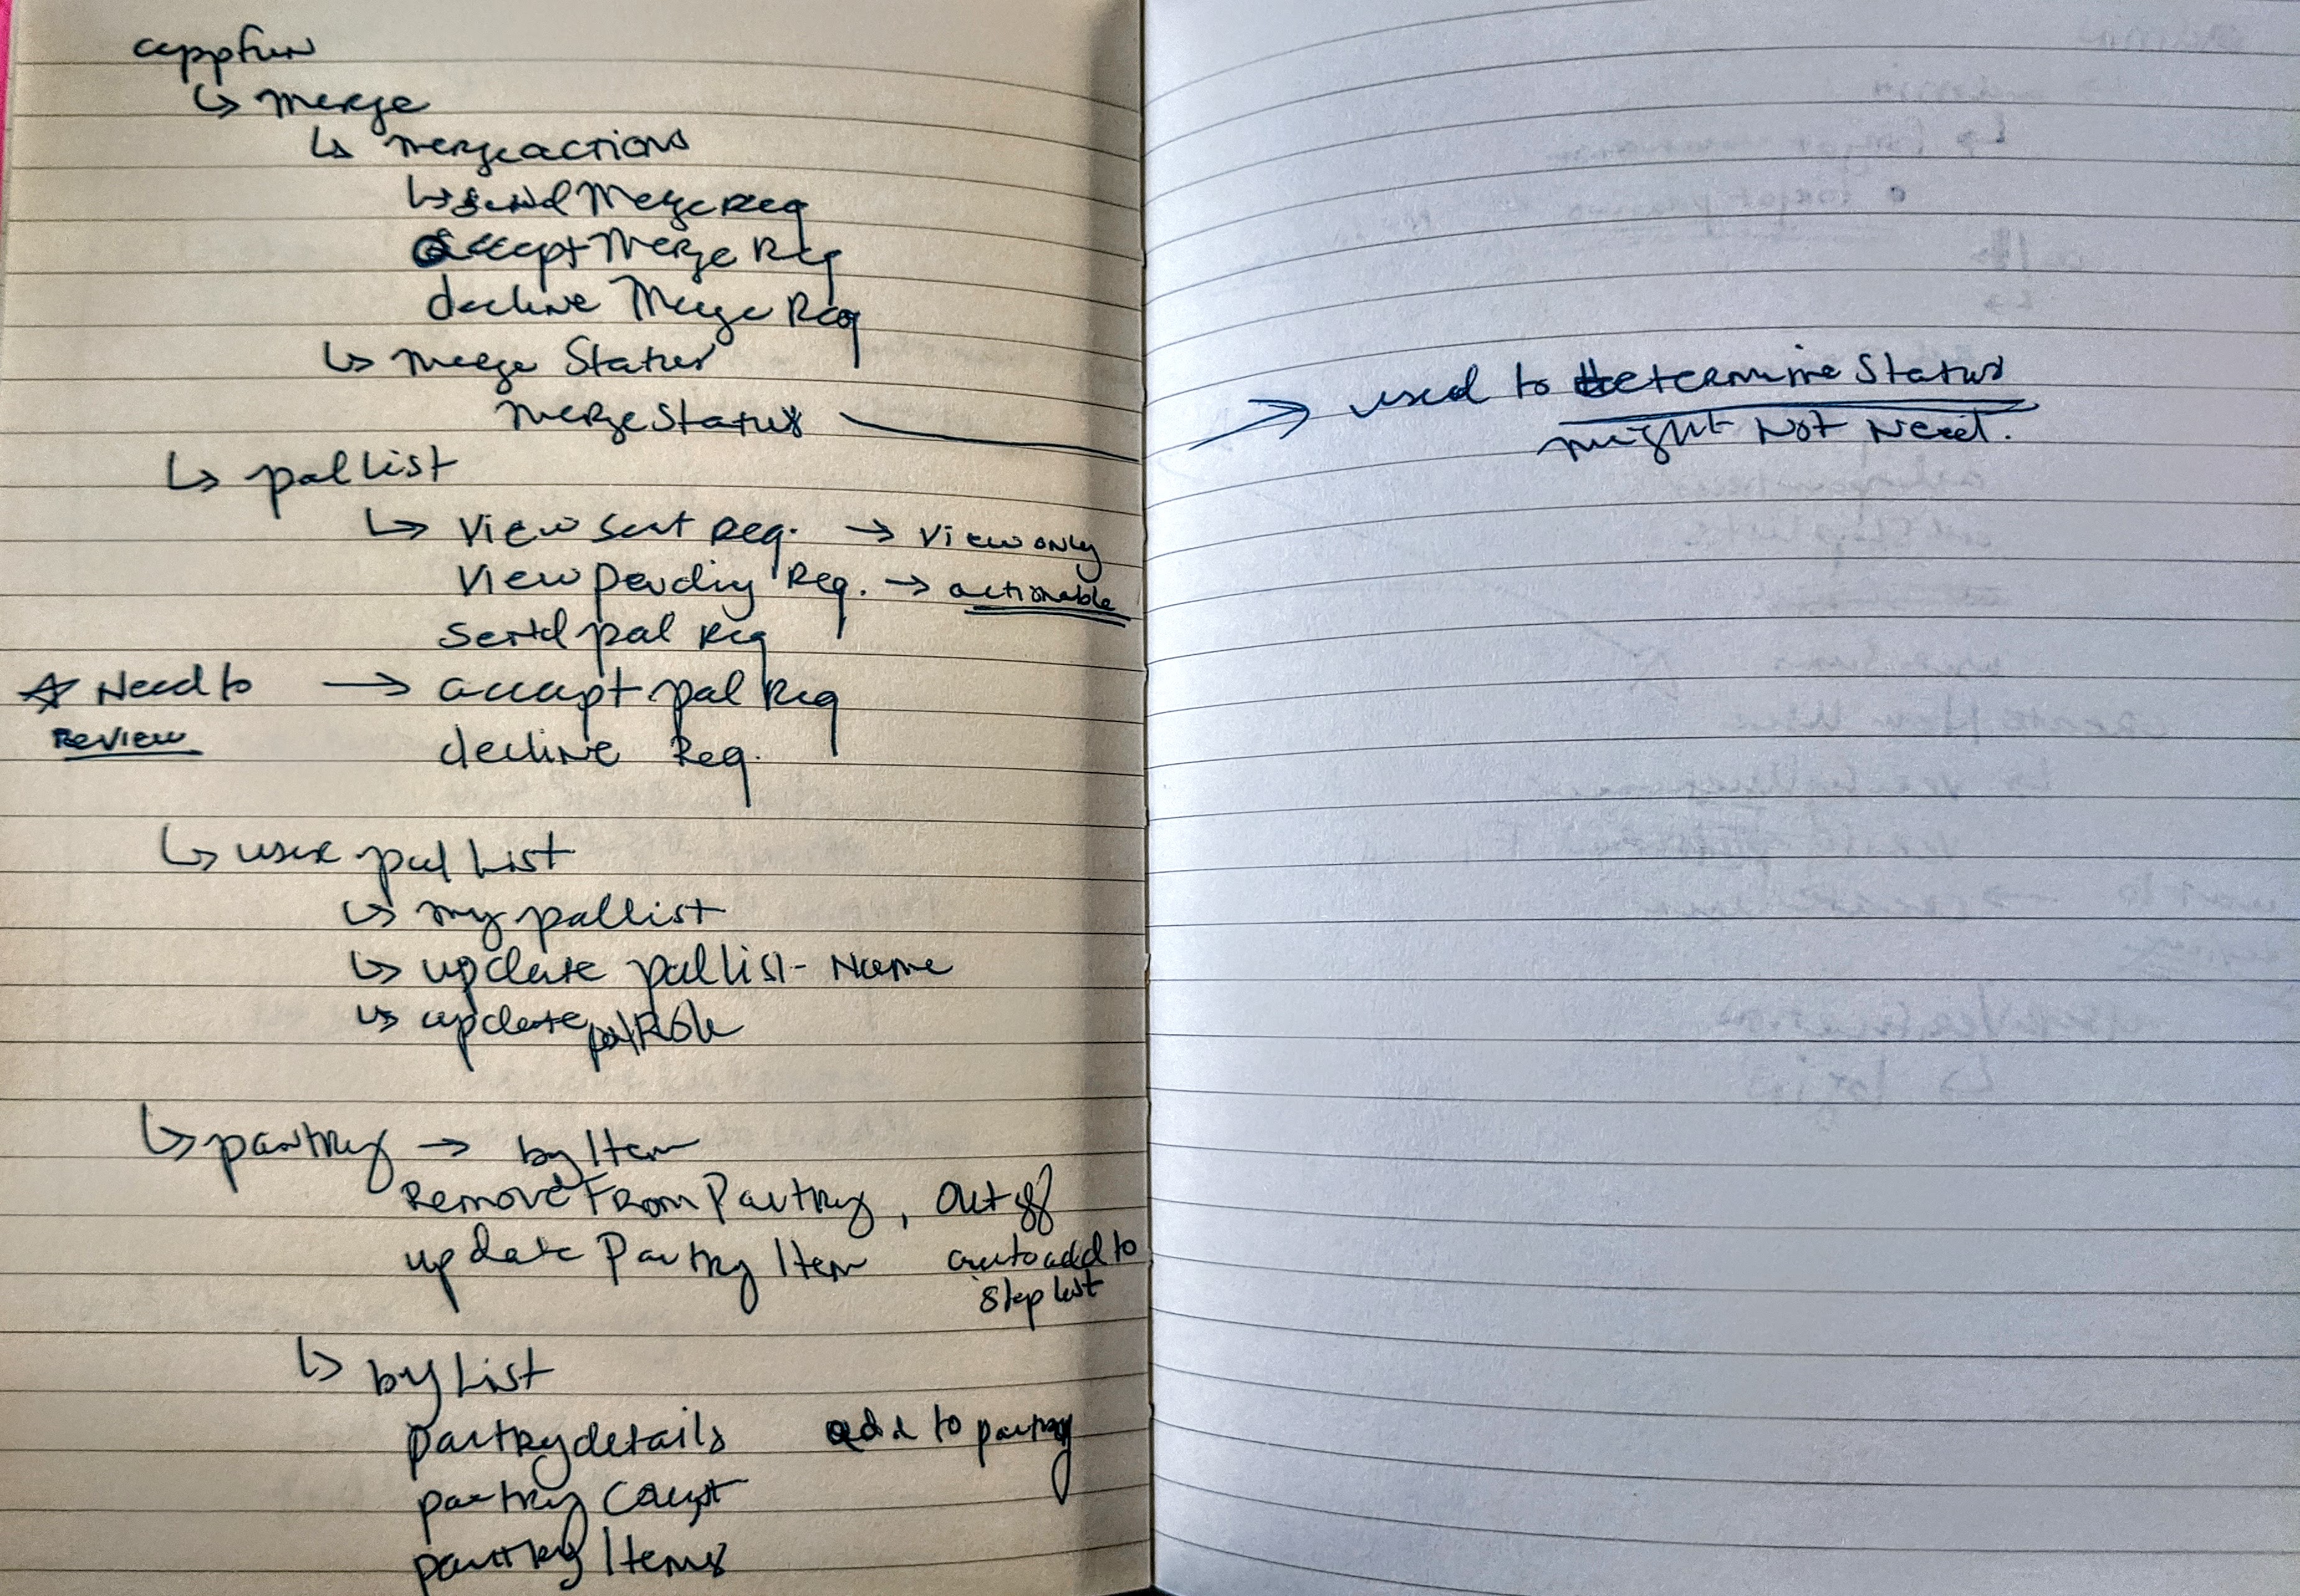 appfun
↳ merge
↳ mergeactions
↳ send MergeReq
accept Merge Req
decline Merge Req
↳ merge Status
mergeStatus → used to determine Status
might Not Need.
↳ pallist
↳ View Sent Req. → View only
View Pending Req. → actionable
Send pal Req
☆ Need to → accept pal Req
Review
decline Req.
↳ user pal List
↳ my pallist
↳ update pallist-Name
↳ update palRole
↳ pantry → by Item
RemoveFromPantry,
update Pantry Item auto add to
list
↳ by List
pantrydetails add to pantry
pantry Count
pantry Items